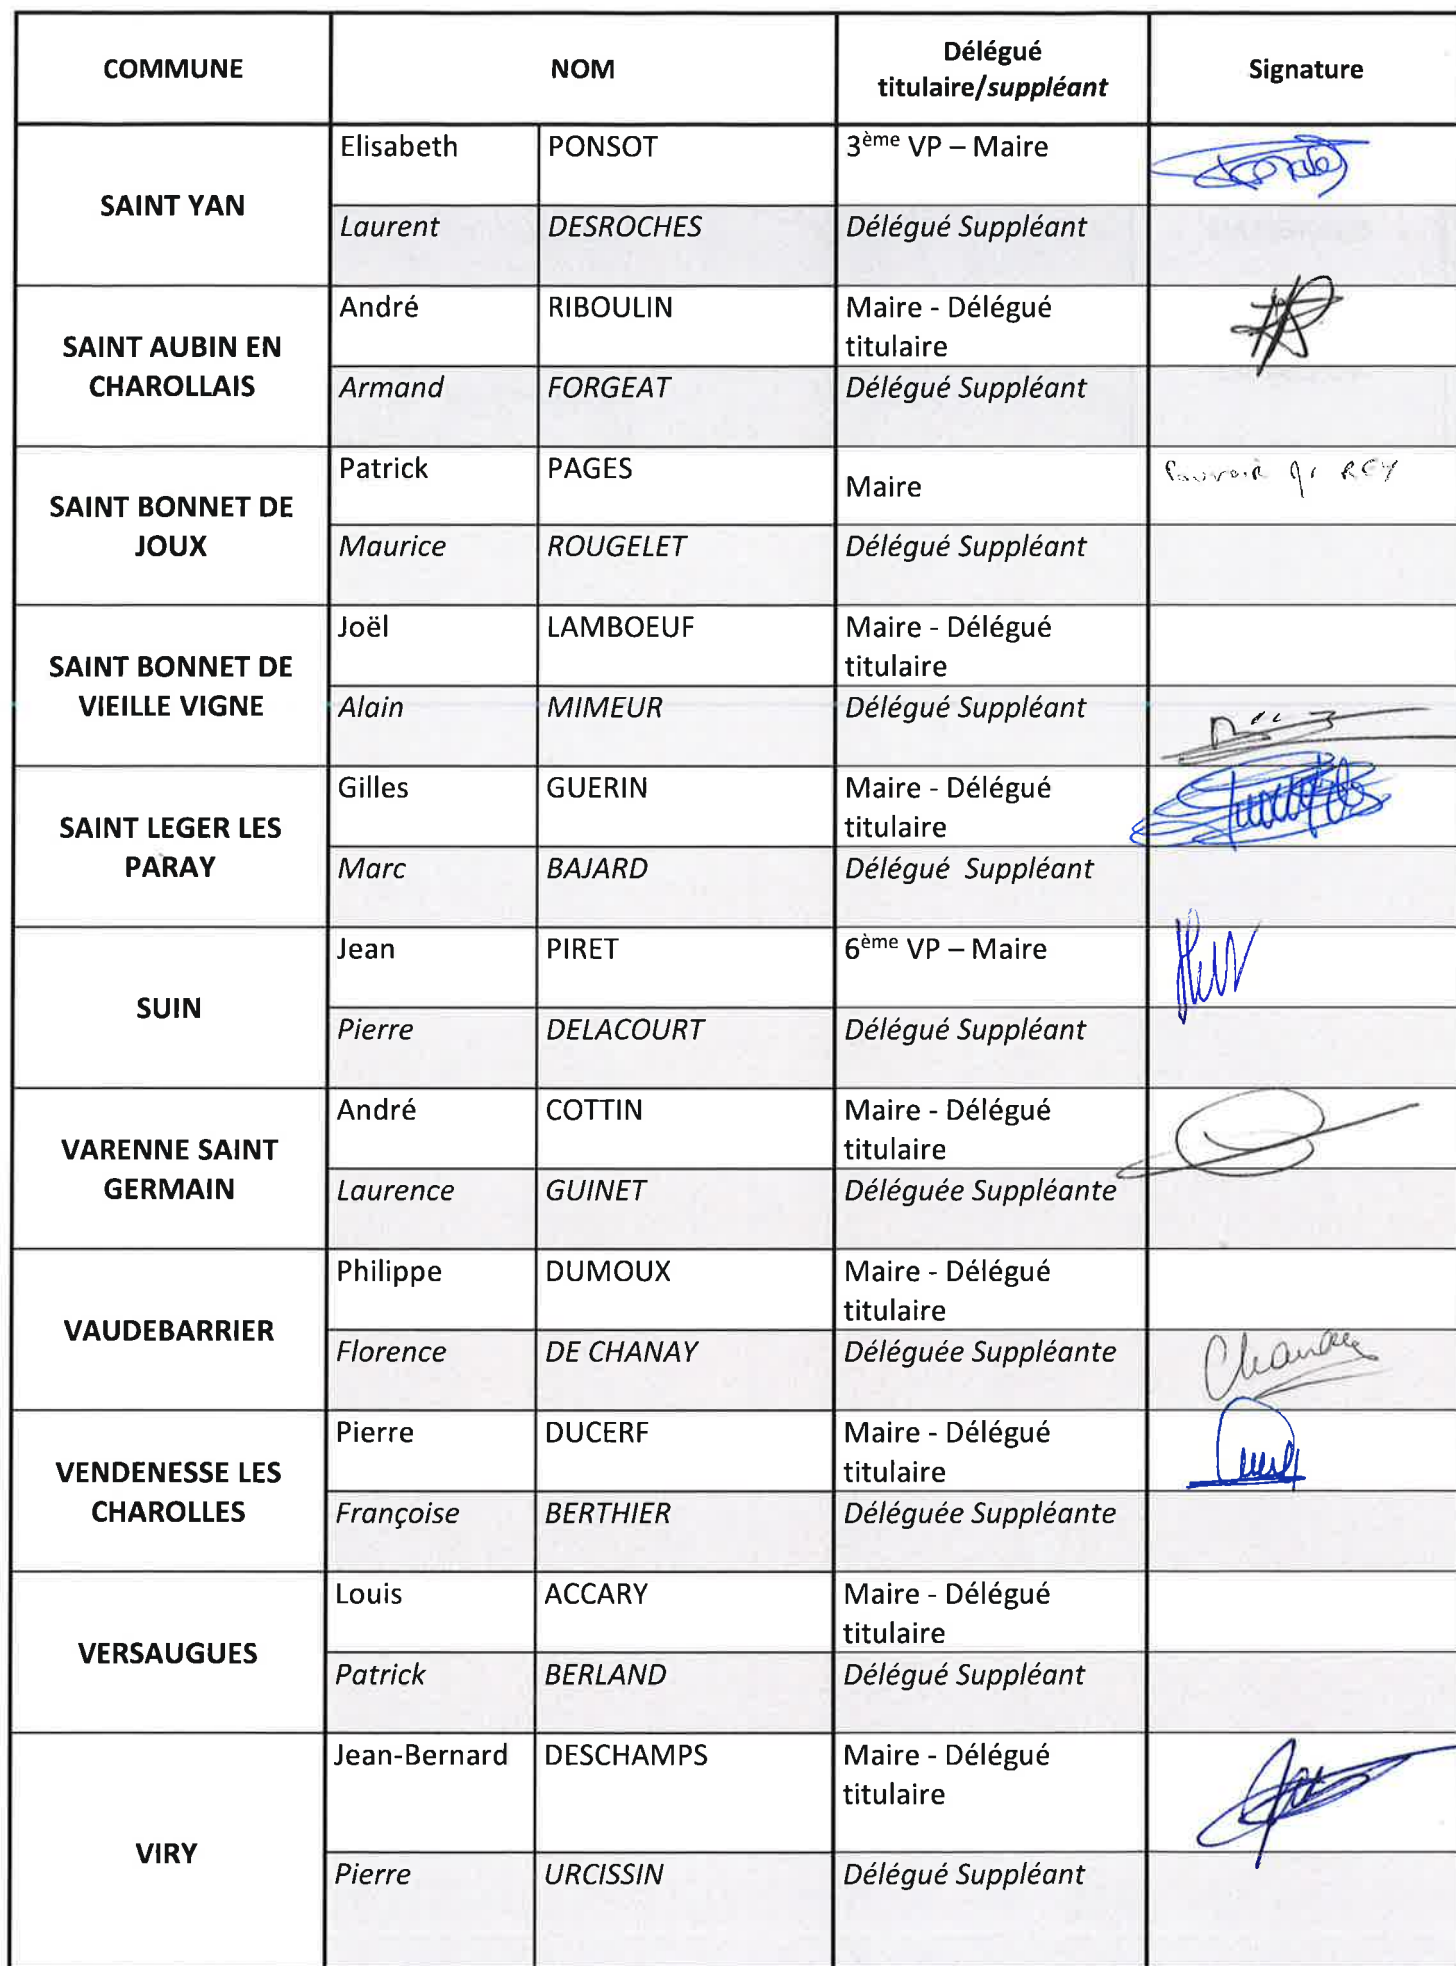 COMMUNE NOM Délégué titulaire/suppléant Signature
SAINT YAN
Elisabeth PONSOT 3ème VP – Maire
Laurent DESROCHES Délégué Suppléant
SAINT AUBIN EN CHAROLLAIS
André RIBOULIN Maire - Délégué titulaire
Armand FORGEAT Délégué Suppléant
SAINT BONNET DE JOUX
Patrick PAGES Maire Pouvoir REY
Maurice ROUGELET Délégué Suppléant
SAINT BONNET DE VIEILLE VIGNE
Joël LAMBOEUF Maire - Délégué titulaire
Alain MIMEUR Délégué Suppléant
SAINT LEGER LES PARAY
Gilles GUERIN Maire - Délégué titulaire
Marc BAJARD Délégué Suppléant
SUIN
Jean PIRET 6ème VP – Maire
Pierre DELACOURT Délégué Suppléant
VARENNE SAINT GERMAIN
André COTTIN Maire - Délégué titulaire
Laurence GUINET Déléguée Suppléante
VAUDEBARRIER
Philippe DUMOUX Maire - Délégué titulaire
Florence DE CHANAY Déléguée Suppléante
VENDENESSE LES CHAROLLES
Pierre DUCERF Maire - Délégué titulaire
Françoise BERTHIER Déléguée Suppléante
VERSAUGUES
Louis ACCARY Maire - Délégué titulaire
Patrick BERLAND Délégué Suppléant
VIRY
Jean-Bernard DESCHAMPS Maire - Délégué titulaire
Pierre URCISSIN Délégué Suppléant